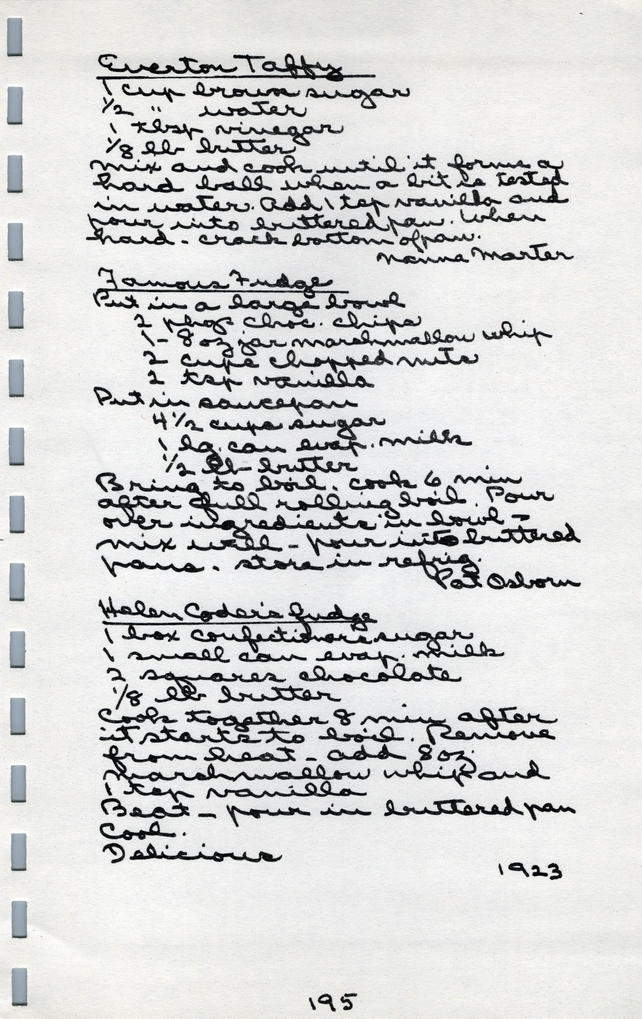 Everton Taffy
1 cup brown sugar
1/2 " water
1 tbsp vinegar
1/8 lb butter
Mix and cook until it forms a
hard ball when a bit is tested
in water. Add 1 tsp vanilla and
pour into buttered pan. When
hard - crack bottom of pan.
Nanna Marter
Famous Fudge
Put in a large bowl
2 pkgs choc. chips
1 - 8 oz jar marshmallow whip
2 cups chopped nuts
2 tsp vanilla
Put in saucepan
4 1/2 cups sugar
1 lg. can evap. milk
1/2 lb butter
Bring to boil. cook 6 min
after full rolling boil. Pour
over ingredients in bowl -
mix well - pour into buttered
pans. store in refrig.
Pat Osborn
Helen Coder's Fudge
1 box confectioner's sugar
1 small can evap. milk
2 squares chocolate
1/8 lb butter
Cook together 8 min after
it starts to boil. Remove
from heat - add 8 oz.
marshmallow whip and
1 tsp vanilla
Beat - pour in buttered pan
Cool.
Delicious
1923
195